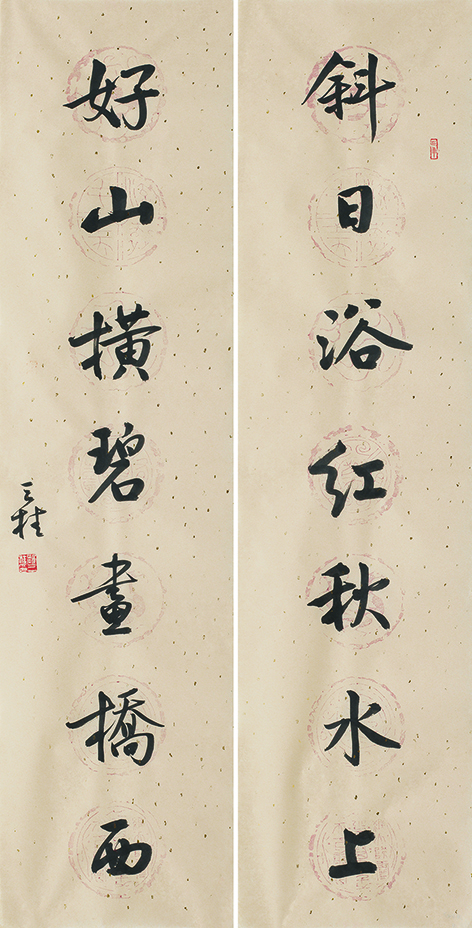 斜日浴红秋水上
好山横碧画橋西